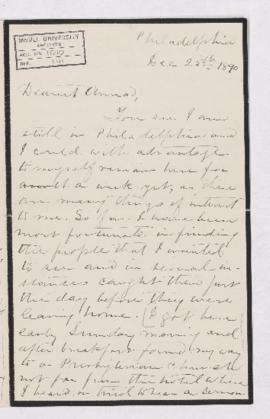 McGILL UNIVERSITY
ACC. NO.
REF.
Philadelphia
Dec 25th 1890
Dearest Anna,
You see I am
still in Philadelphia and
I could with advantage
to myself remain here for
a week yet, as there
are many things of interest
to me. So far I have been
most fortunate in finding
the people that I wanted
to see and in several in-
stances caught them just
the day before they were
leaving home. I got here
early Sunday morning and
after breakfast found my way
to a Presbyterian church
not far from the hotel where
I heard, or tried to hear a sermon.